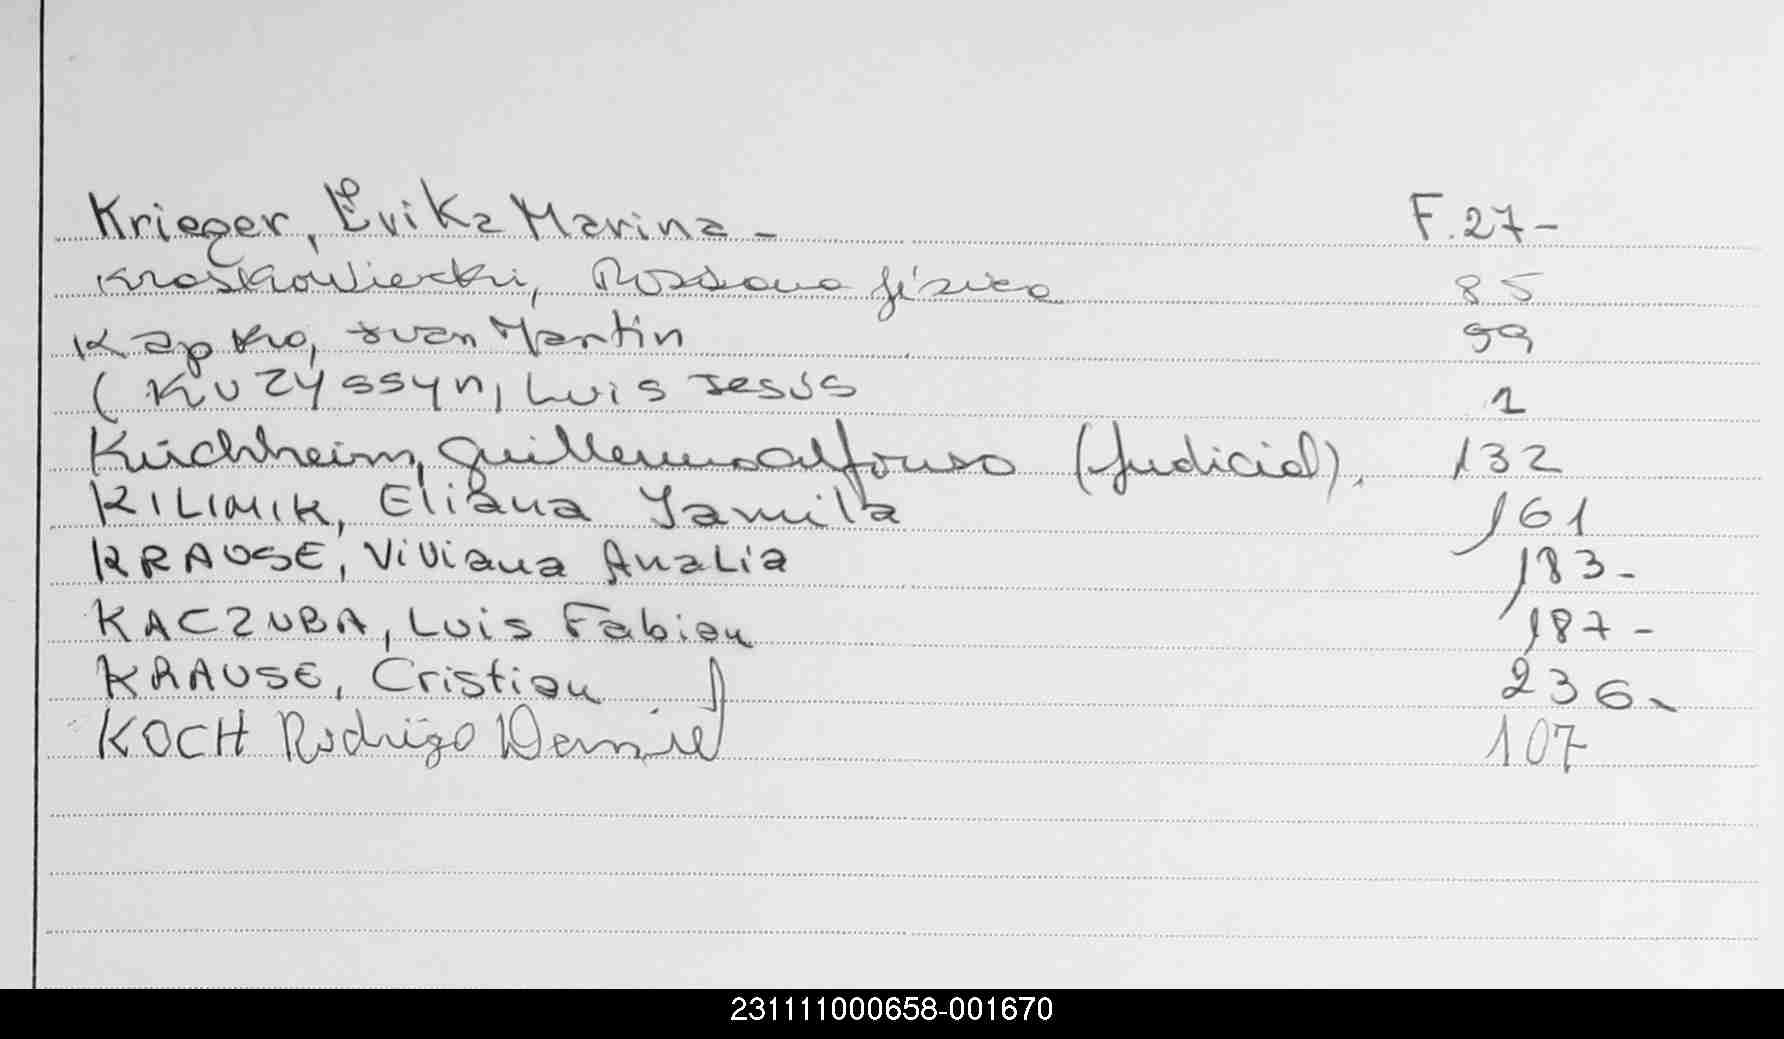 Krieger, Erika Marina - F. 27-
Kroskowiecki, Rossana Jésica 85
Kapko, Ivan Martin 99
( Kuzyssyn, Luis Jesús 1
Kirchheim, Guillermo Alfonso (Judicial). 132
KILIMIK, Eliana Yamila 161
KRAUSE, Viviana Analia 183-
KACZUBA, Luis Fabian 187-
KRAUSE, Cristian 236-
KOCH Rodrigo Daniel 107
231111000658-001670